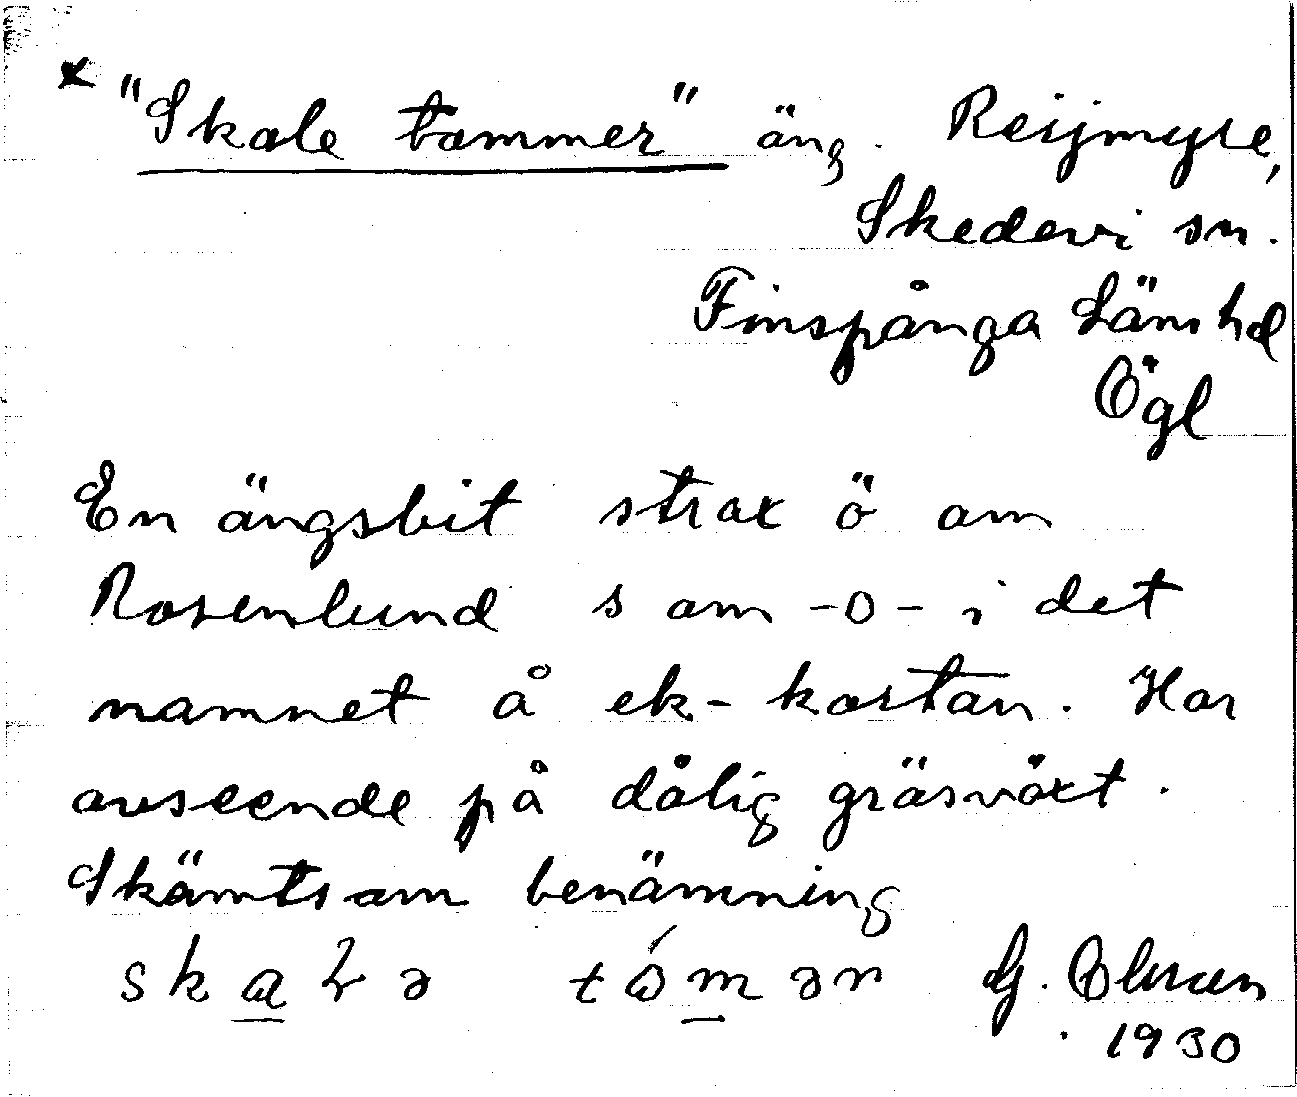 x "Skale tammer" äng. Reijmyre,
Skedevi sn.
Finspånga Läns hd
Ögl
En ängsbit strax ö om
Rosenlund s om -o- i det
namnet å ek-kartan. Har
avseende på dålig gräsväxt.
Skämtsam benämning
G.
1930